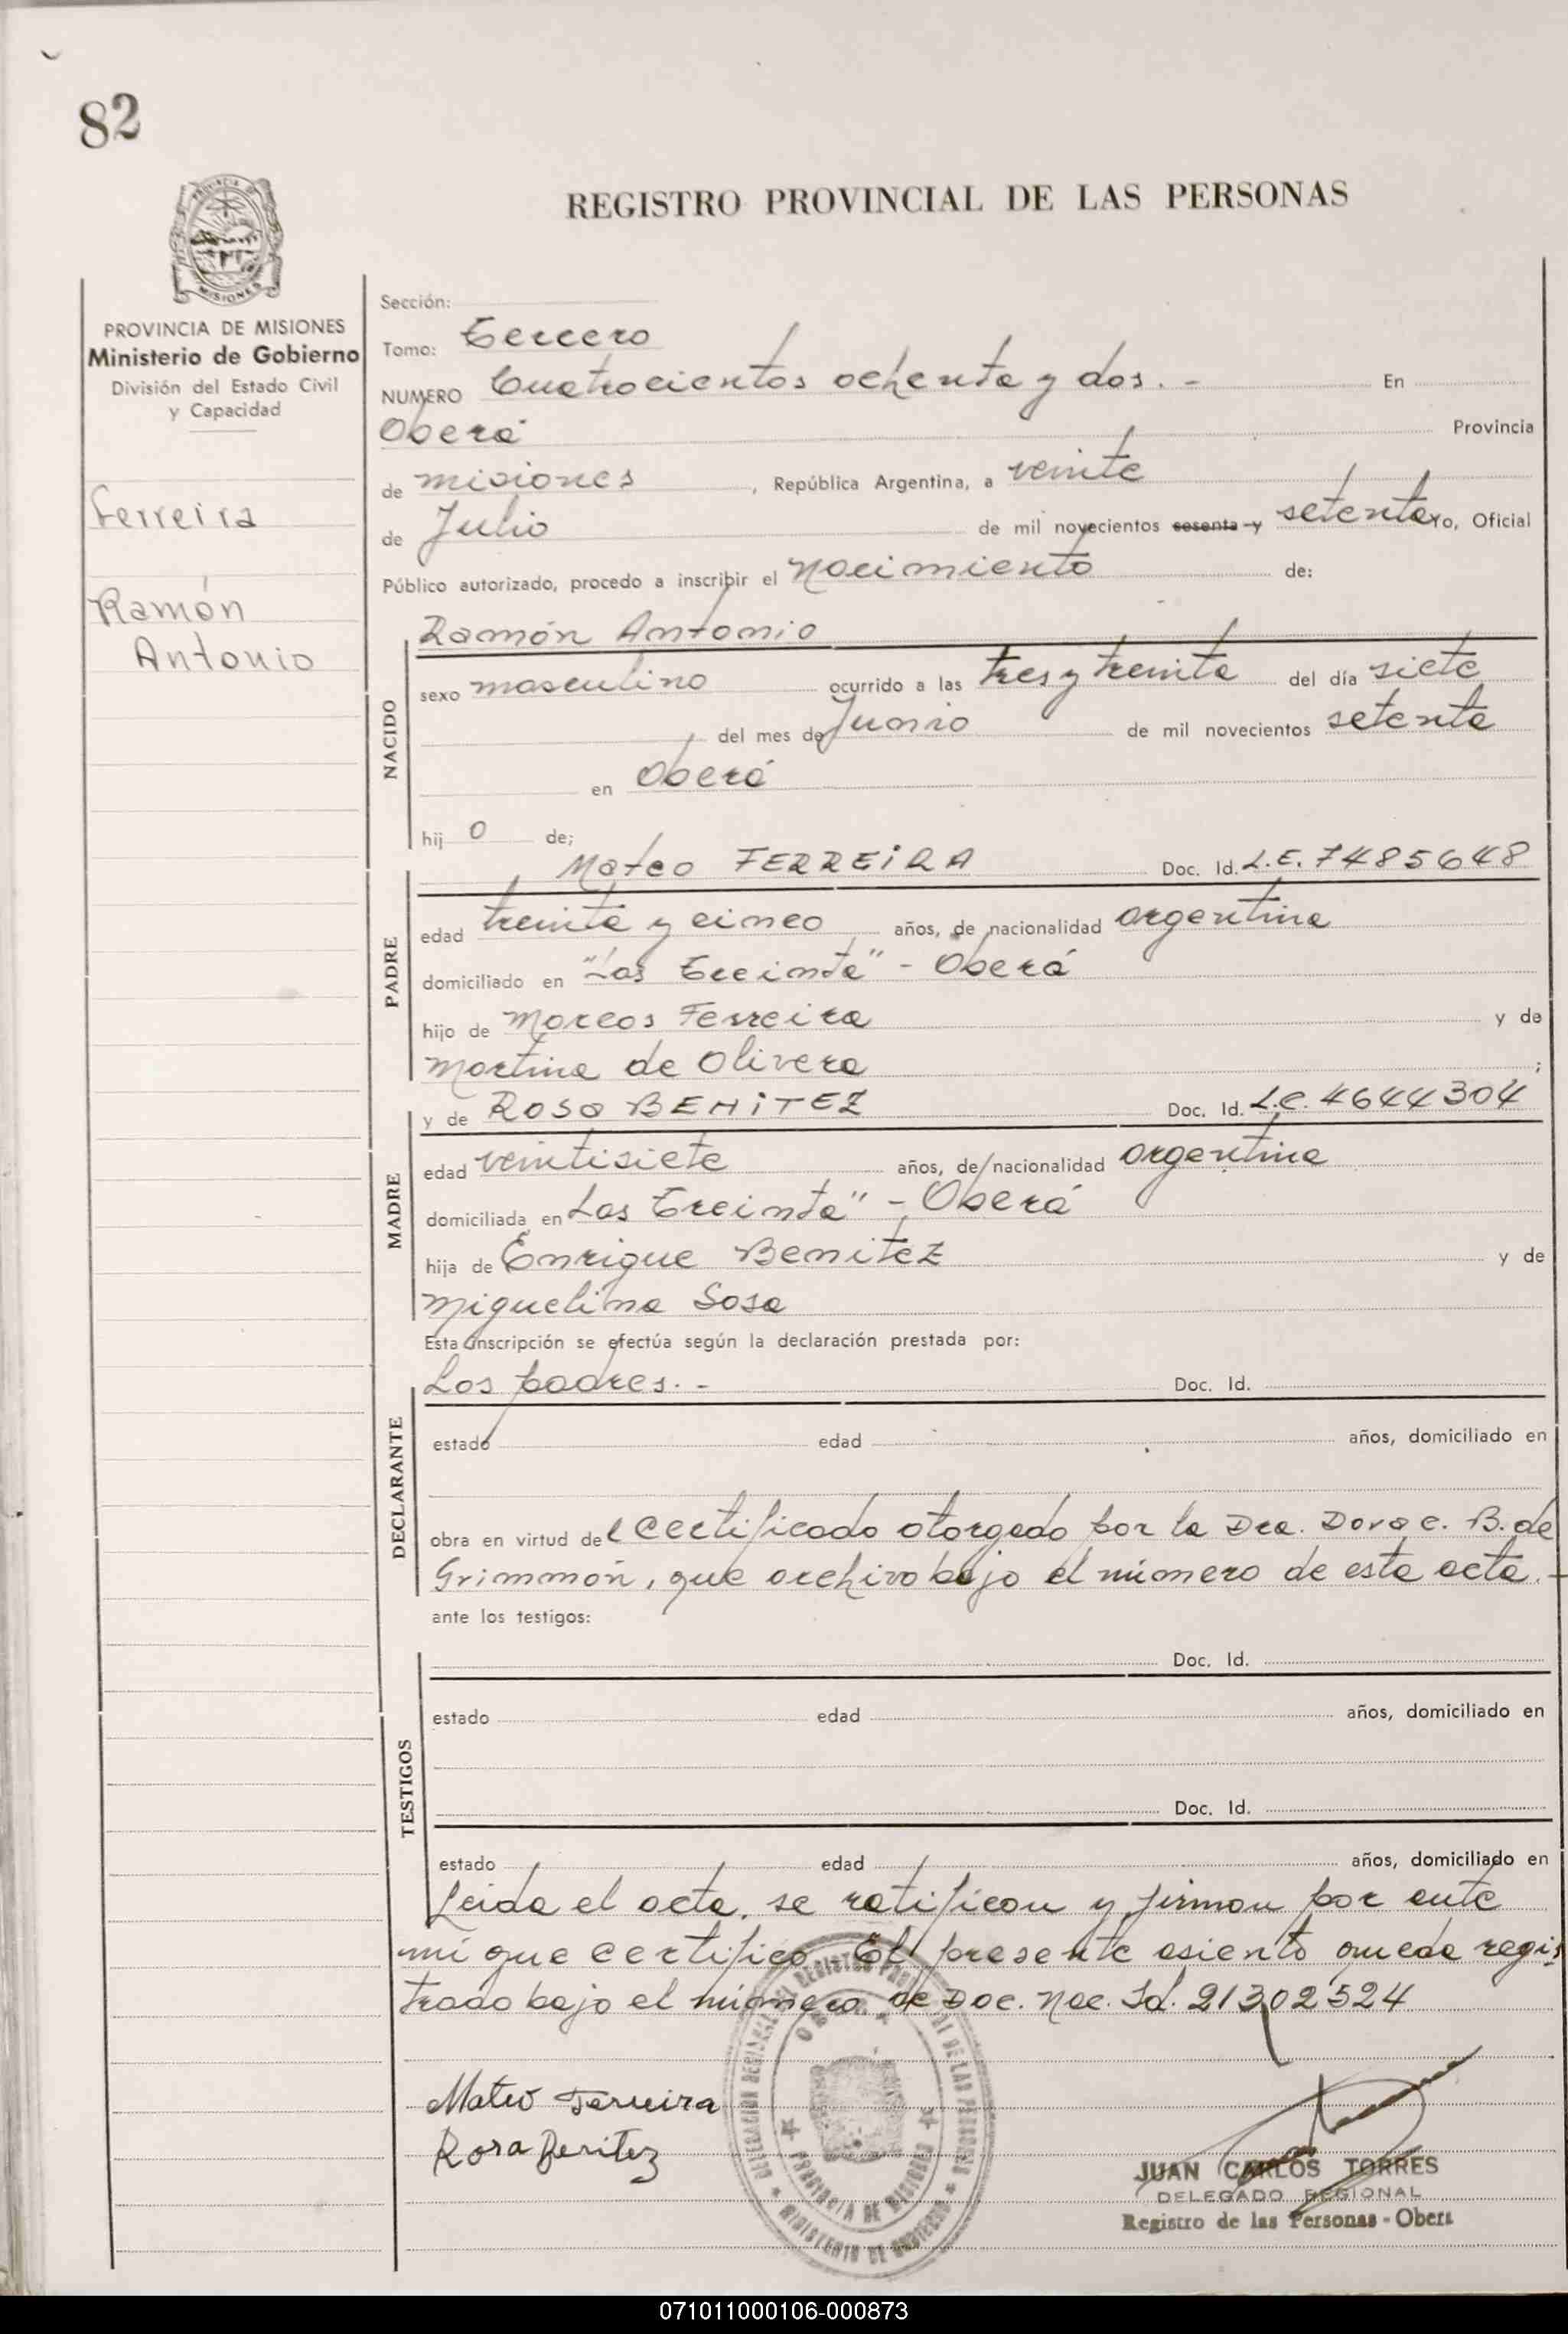 82
REGISTRO PROVINCIAL DE LAS PERSONAS
MISIONES
PROVINCIA DE MISIONES
Ministerio de Gobierno
División del Estado Civil
y Capacidad
Ferreira
Ramón
Antonio
Sección:
Tomo: Tercero
NUMERO Cuatrocientos ochenta y dos. - En
Oberá Provincia
de misiones, República Argentina, a veinte
de Julio de mil novecientos sesenta y setenta Yo, Oficial
Público autorizado, procedo a inscribir el nacimiento de:
Ramón Antonio
NACIDO
sexo masculino ocurrido a las tres y treinta del día siete
del mes de Junio de mil novecientos setenta
en Oberá
hijo de;
Mateo FERREIRA Doc. Id. L.E. 7485648
PADRE
edad treinta y cinco años, de nacionalidad argentina
domiciliado en "Las Treinta" - Oberá
hijo de Marcos Ferreira y de
Martina de Olivera ;
y de Rosa BENITEZ Doc. Id. L.C. 4644304
MADRE
edad veintisiete años, de nacionalidad argentina
domiciliada en Las Treinta" - Oberá
hija de Enrique Benitez y de
Miguelina Sosa
Esta inscripción se efectúa según la declaración prestada por:
Los padres. - Doc. Id.
DECLARANTE
estado edad años, domiciliado en
obra en virtud del certificado otorgado por la Dra. Dora C. B. de
Grimmón, que archivo bajo el número de esta acta. -
ante los testigos:
Doc. Id.
TESTIGOS
estado edad años, domiciliado en
Doc. Id.
estado edad años, domiciliado en
Leida el acta, se ratifican y firman por ante
mi que certifico. El presente asiento queda regis
trado bajo el número de Doc. Nac. Id. 21302524
Mateo Ferreira
Rosa Benitez
PROVINCIA DE MISIONES
MINISTERIO DE GOBIERNO
JUAN CARLOS TORRES
DELEGADO REGIONAL
Registro de las Personas - Oberá
071011000106-000873